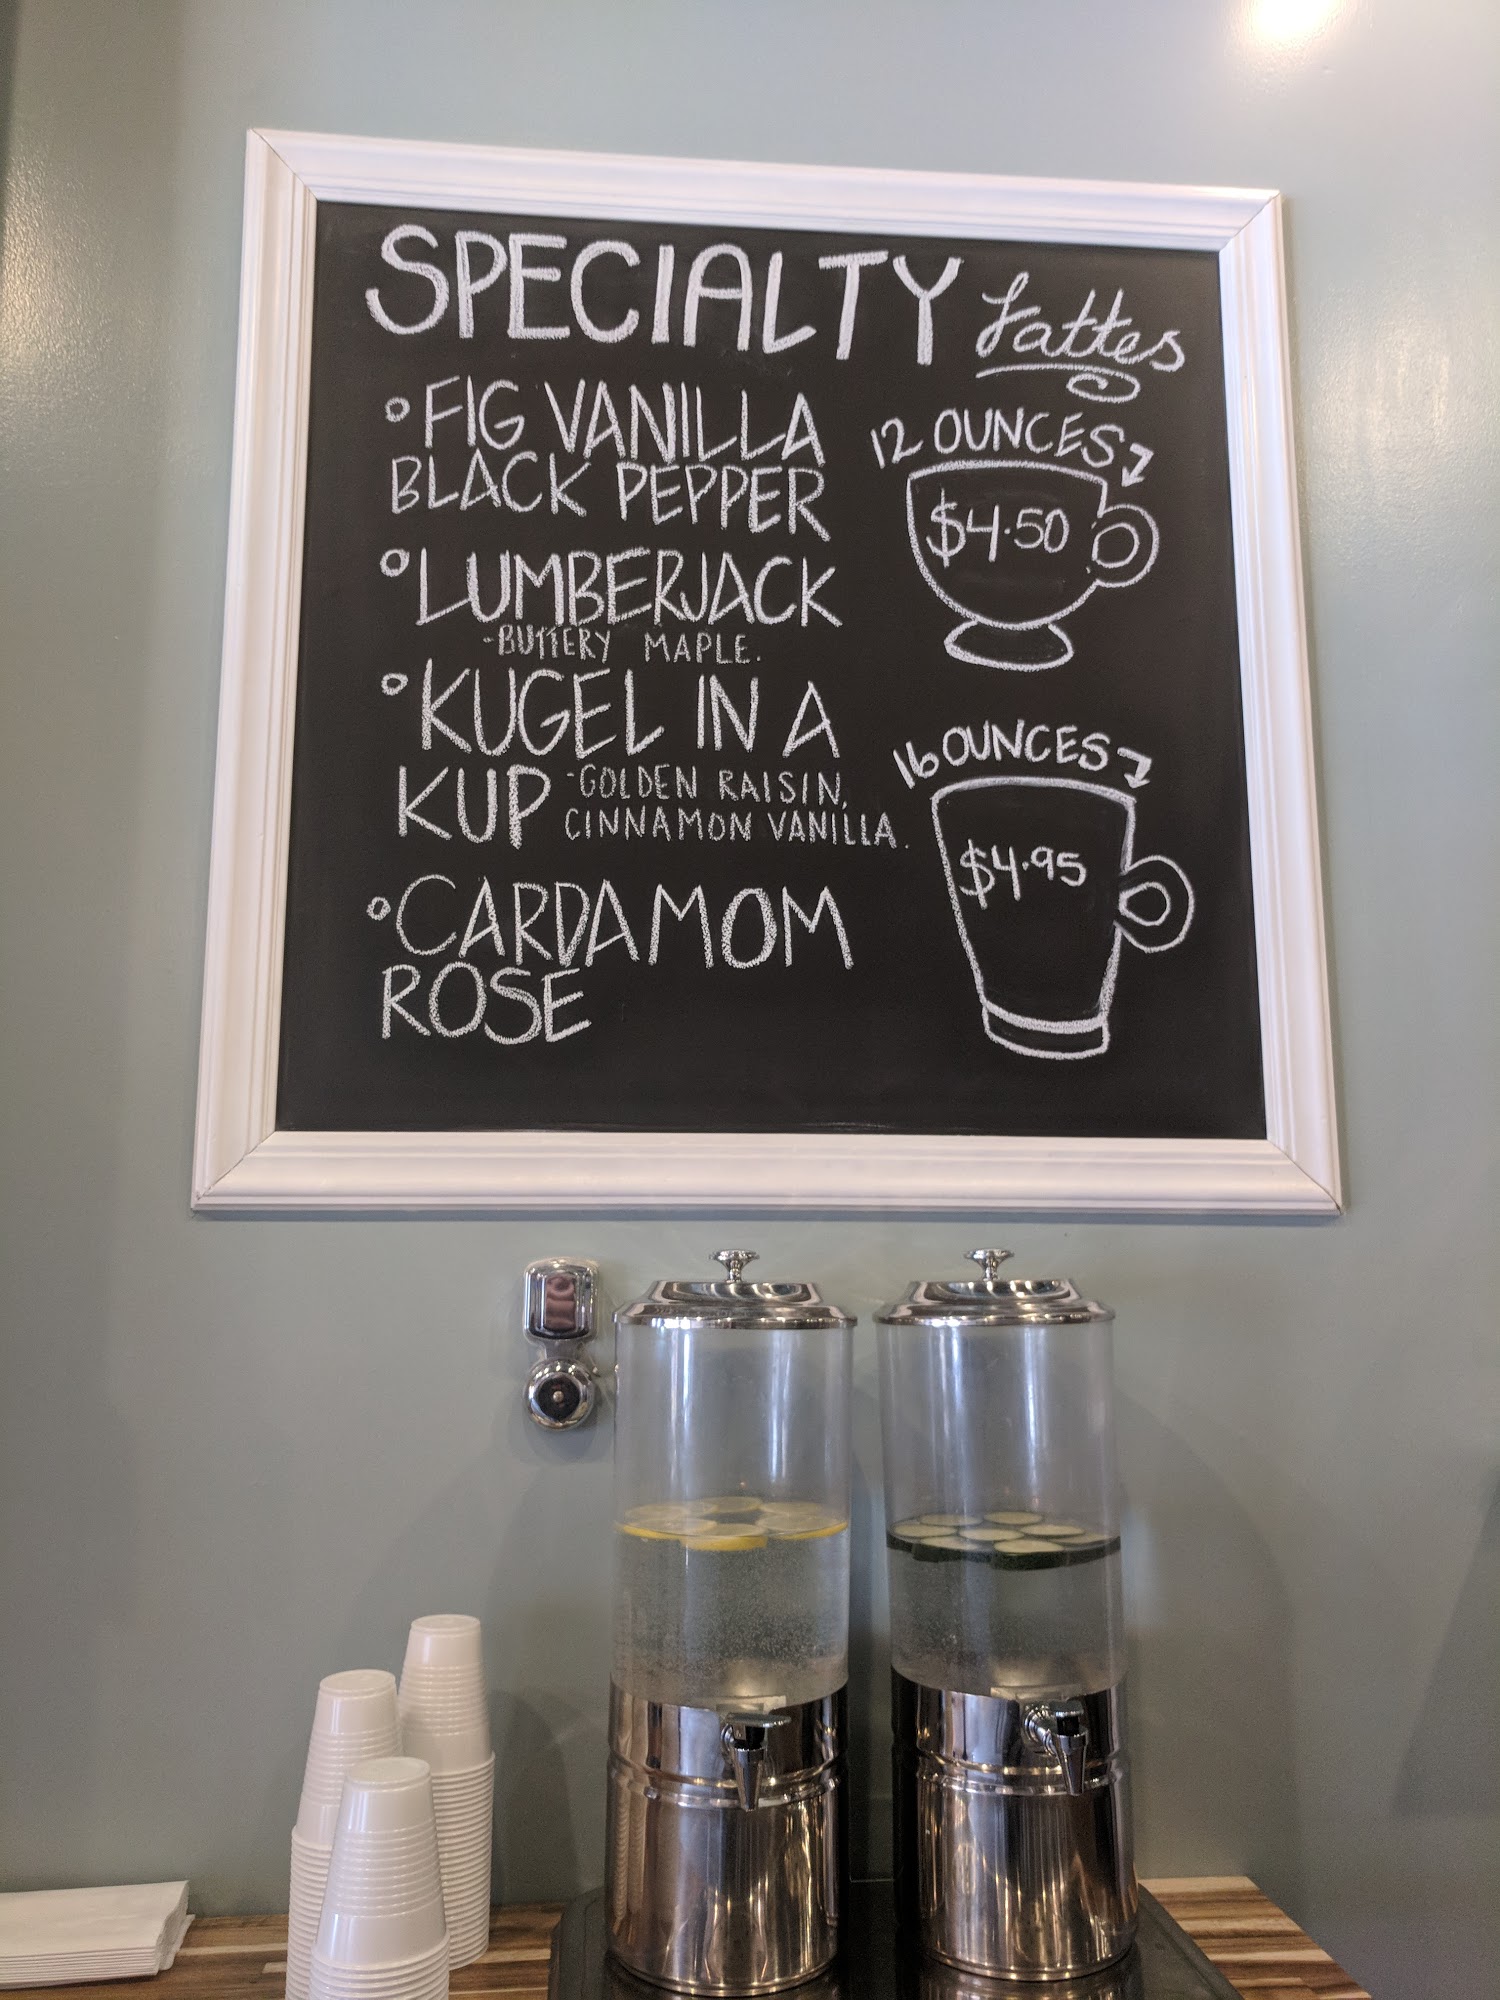 SPECIALTY Lattes
° FIG VANILLA
BLACK PEPPER
° LUMBERJACK
-BUTTERY MAPLE.
° KUGEL IN A
KUP -GOLDEN RAISIN,
CINNAMON VANILLA.
° CARDAMOM
ROSE
12 OUNCES
$4.50
16 OUNCES
$4.95